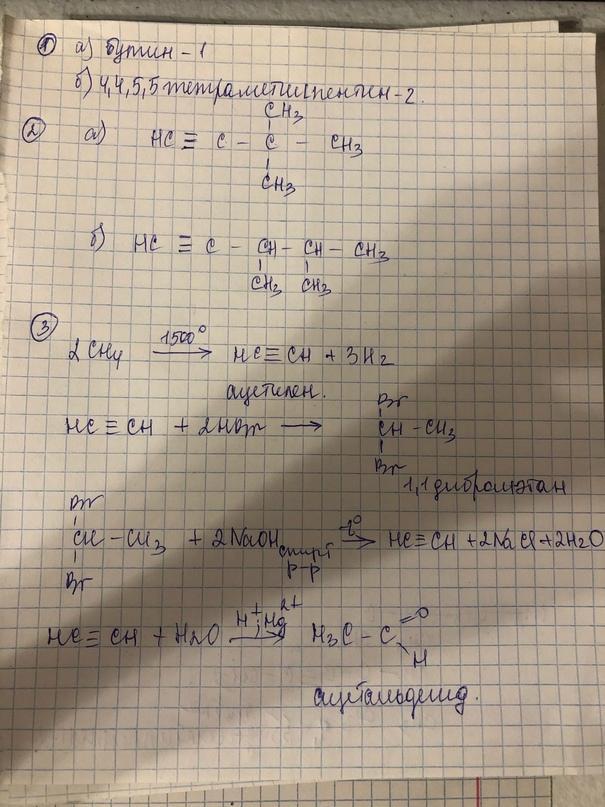 ① а) Бутин-1
б) 4,4,5,5 тетраметилпентин-2.
② а) HC ≡ C - C - CH₃
CH₃
CH₃
б) HC ≡ C - CH - CH - CH₃
CH₃ CH₃
③ 2CH₄ 1500° → HC≡CH + 3H₂
ацетилен.
HC≡CH + 2HBr → CH-CH₃
Br
Br
1,1 дибромэтан
Br
CH-CH₃ + 2NaOH спирт р-р t° → HC≡CH + 2NaCl + 2H₂O
Br
HC≡CH + H₂O H⁺; Hg²⁺ → H₃C-C=O
H
ацетальдегид.